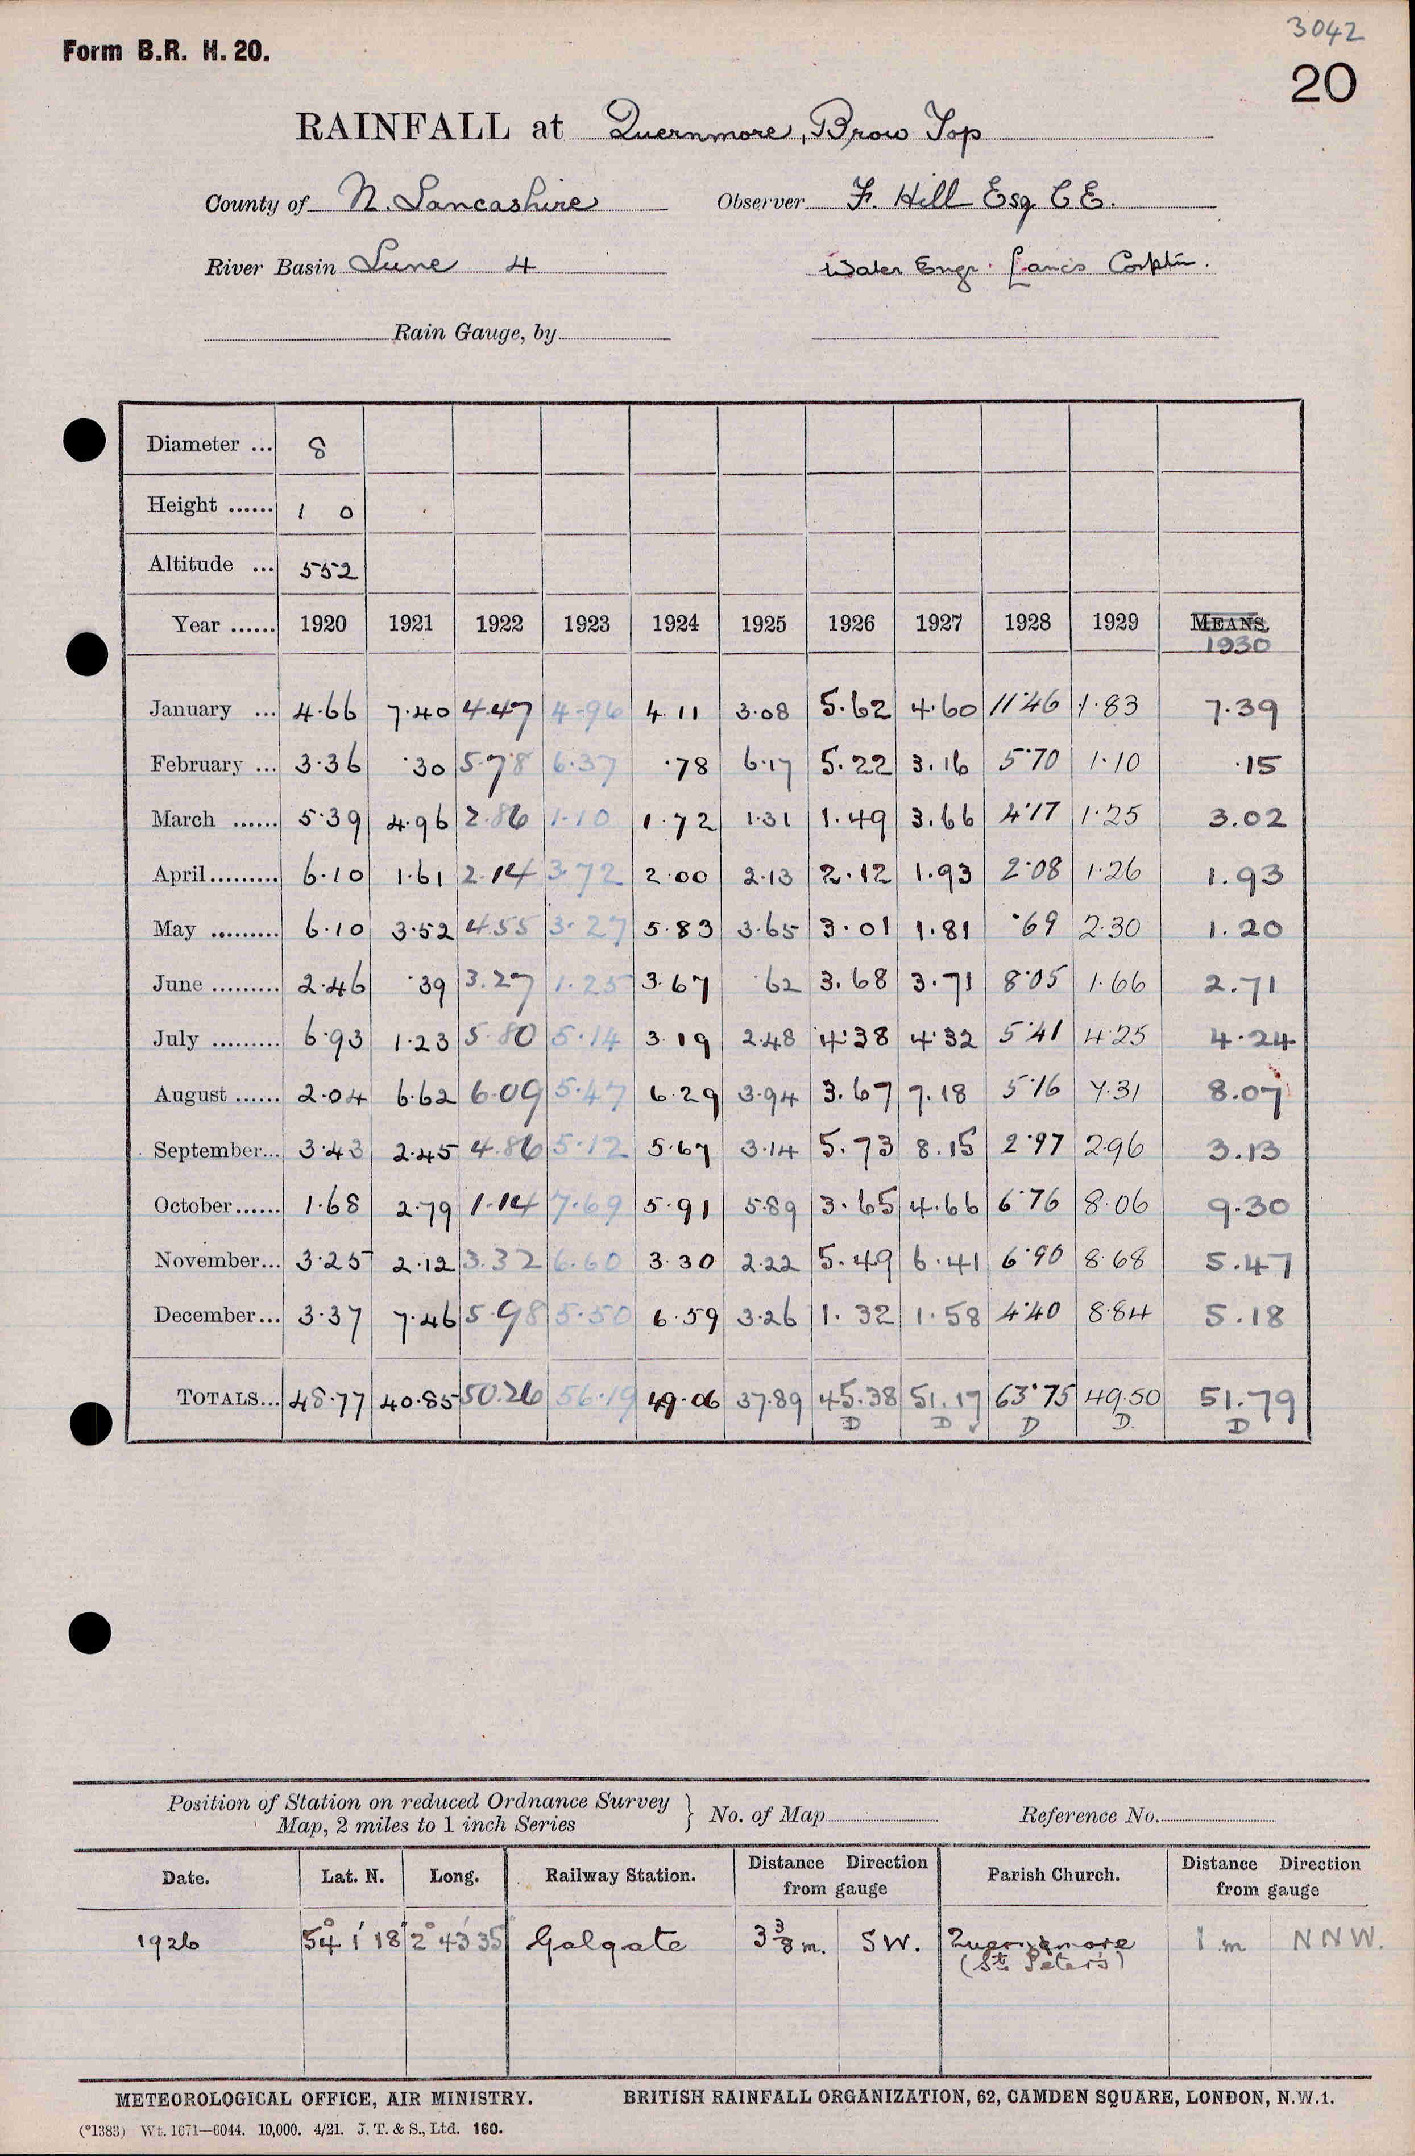 3042
Form B.R. H. 20.
20
RAINFALL at Quernmore, Brow Top
County of N. Lancashire Observer F. Hill Esq C E.
River Basin Lune 4 Water Engr. Lancs Corptn.
Rain Gauge, by
Diameter ... 8
Height ...... 1 0
Altitude ... 552
Year ...... 1920 1921 1922 1923 1924 1925 1926 1927 1928 1929 MEANS
1930
January ... 4.66 7.40 4.47 4.96 4.11 3.08 5.62 4.60 11.46 1.83 7.39
February ... 3.36 .30 5.78 6.37 .78 6.17 5.22 3.16 5.70 1.10 .15
March ...... 5.39 4.96 2.86 1.10 1.72 1.31 1.49 3.66 4.17 1.25 3.02
April......... 6.10 1.61 2.14 3.72 2.00 2.13 2.12 1.93 2.08 1.26 1.93
May ......... 6.10 3.52 4.55 3.27 5.83 3.65 3.01 1.81 .69 2.30 1.20
June ......... 2.46 .39 3.27 1.25 3.67 .62 3.68 3.71 8.05 1.66 2.71
July ......... 6.93 1.23 5.80 5.14 3.19 2.48 4.38 4.32 5.41 4.25 4.24
August ...... 2.04 6.62 6.09 5.47 6.29 3.94 3.67 7.18 5.16 7.31 8.07
September... 3.43 2.45 4.86 5.12 5.67 3.14 5.73 8.15 2.97 2.96 3.13
October...... 1.68 2.79 1.14 7.69 5.91 5.89 3.65 4.66 6.76 8.06 9.30
November... 3.25 2.12 3.32 6.60 3.30 2.22 5.49 6.41 6.90 8.68 5.47
December... 3.37 7.46 5.98 5.50 6.59 3.26 1.32 1.58 4.40 8.84 5.18
TOTALS... 48.77 40.85 50.26 56.19 49.06 37.89 45.38 51.17 63.75 49.50 51.79
D D D D D
Position of Station on reduced Ordnance Survey
Map, 2 miles to 1 inch Series } No. of Map Reference No.
Date. Lat. N. Long. Railway Station. Distance Direction from gauge Parish Church. Distance Direction from gauge
1926 54° 1' 18" 2° 43' 35 Galgate 3 3/8 m. SW. Quernmore 1 m NNW.
(St. Peter's)
METEOROLOGICAL OFFICE, AIR MINISTRY. BRITISH RAINFALL ORGANIZATION, 62, CAMDEN SQUARE, LONDON, N.W.1.
(*1383) Wt. 1671—6044. 10,000. 4/21. J. T. & S., Ltd. 160.